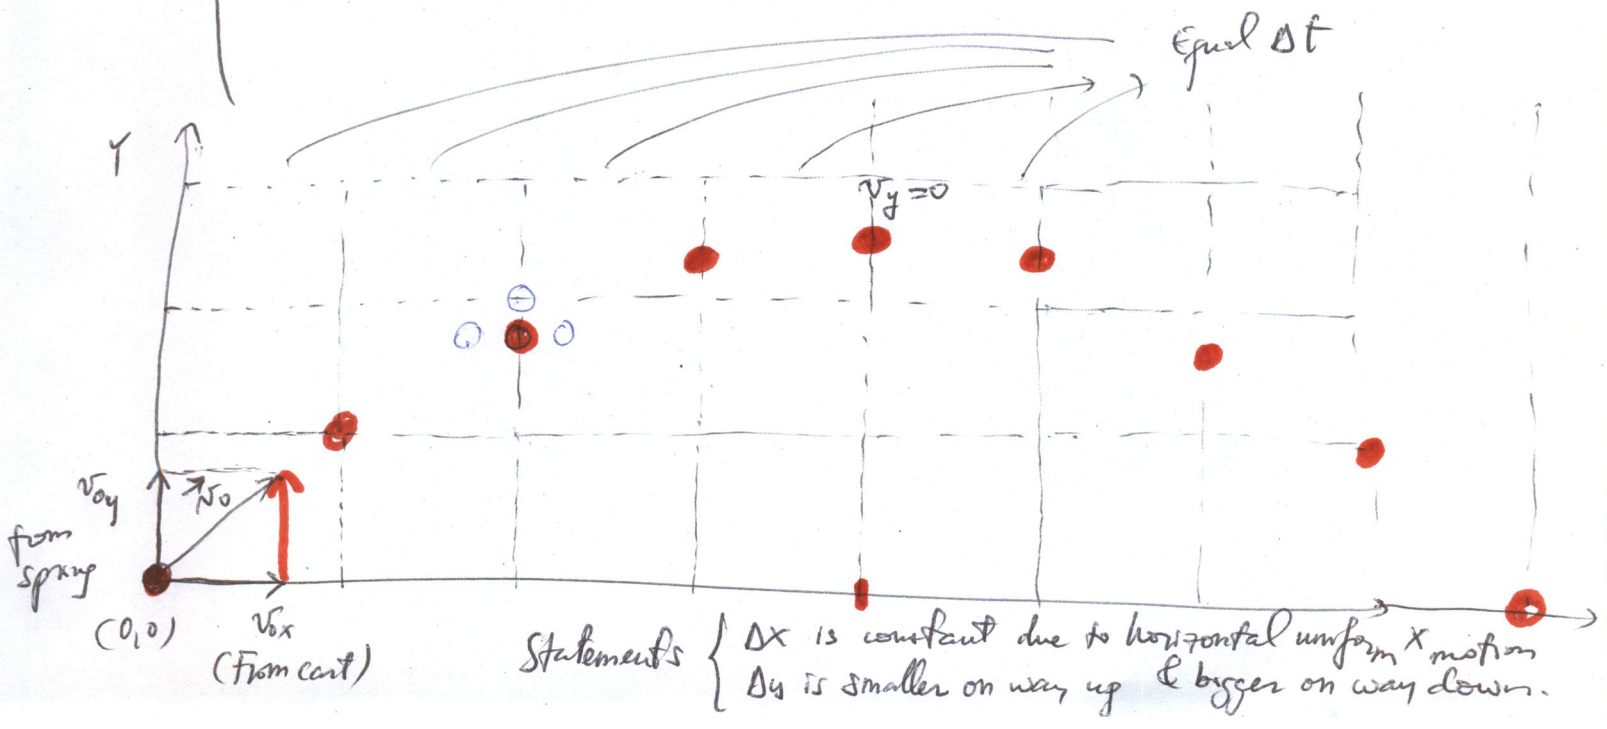 Equal Δt
Y
v_y = 0
v_0y
v_0
from
spring
(0,0)
v_0x
(From cart)
Statements { Δx is constant due to horizontal uniform motion
Δy is smaller on way up & bigger on way down.
X